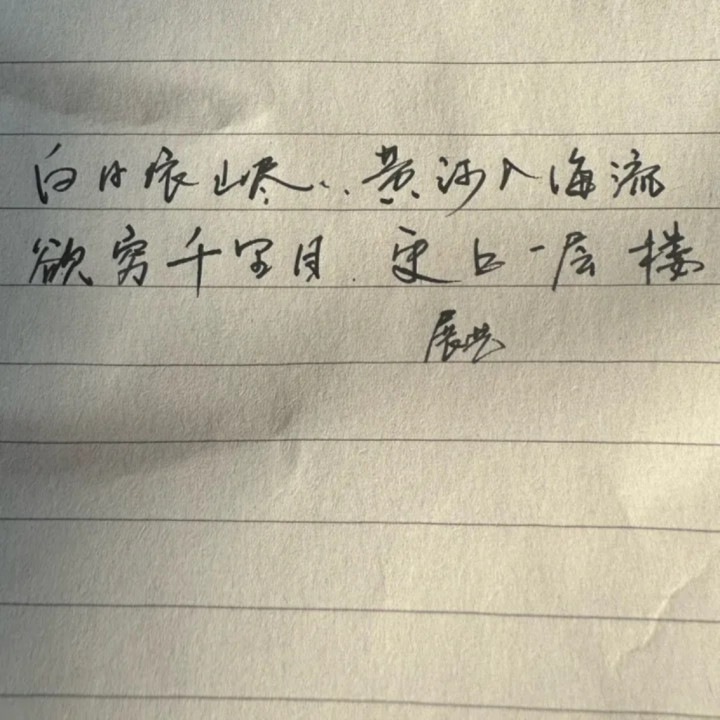 白日依山尽 黄河入海流
欲穷千里目 更上一层楼